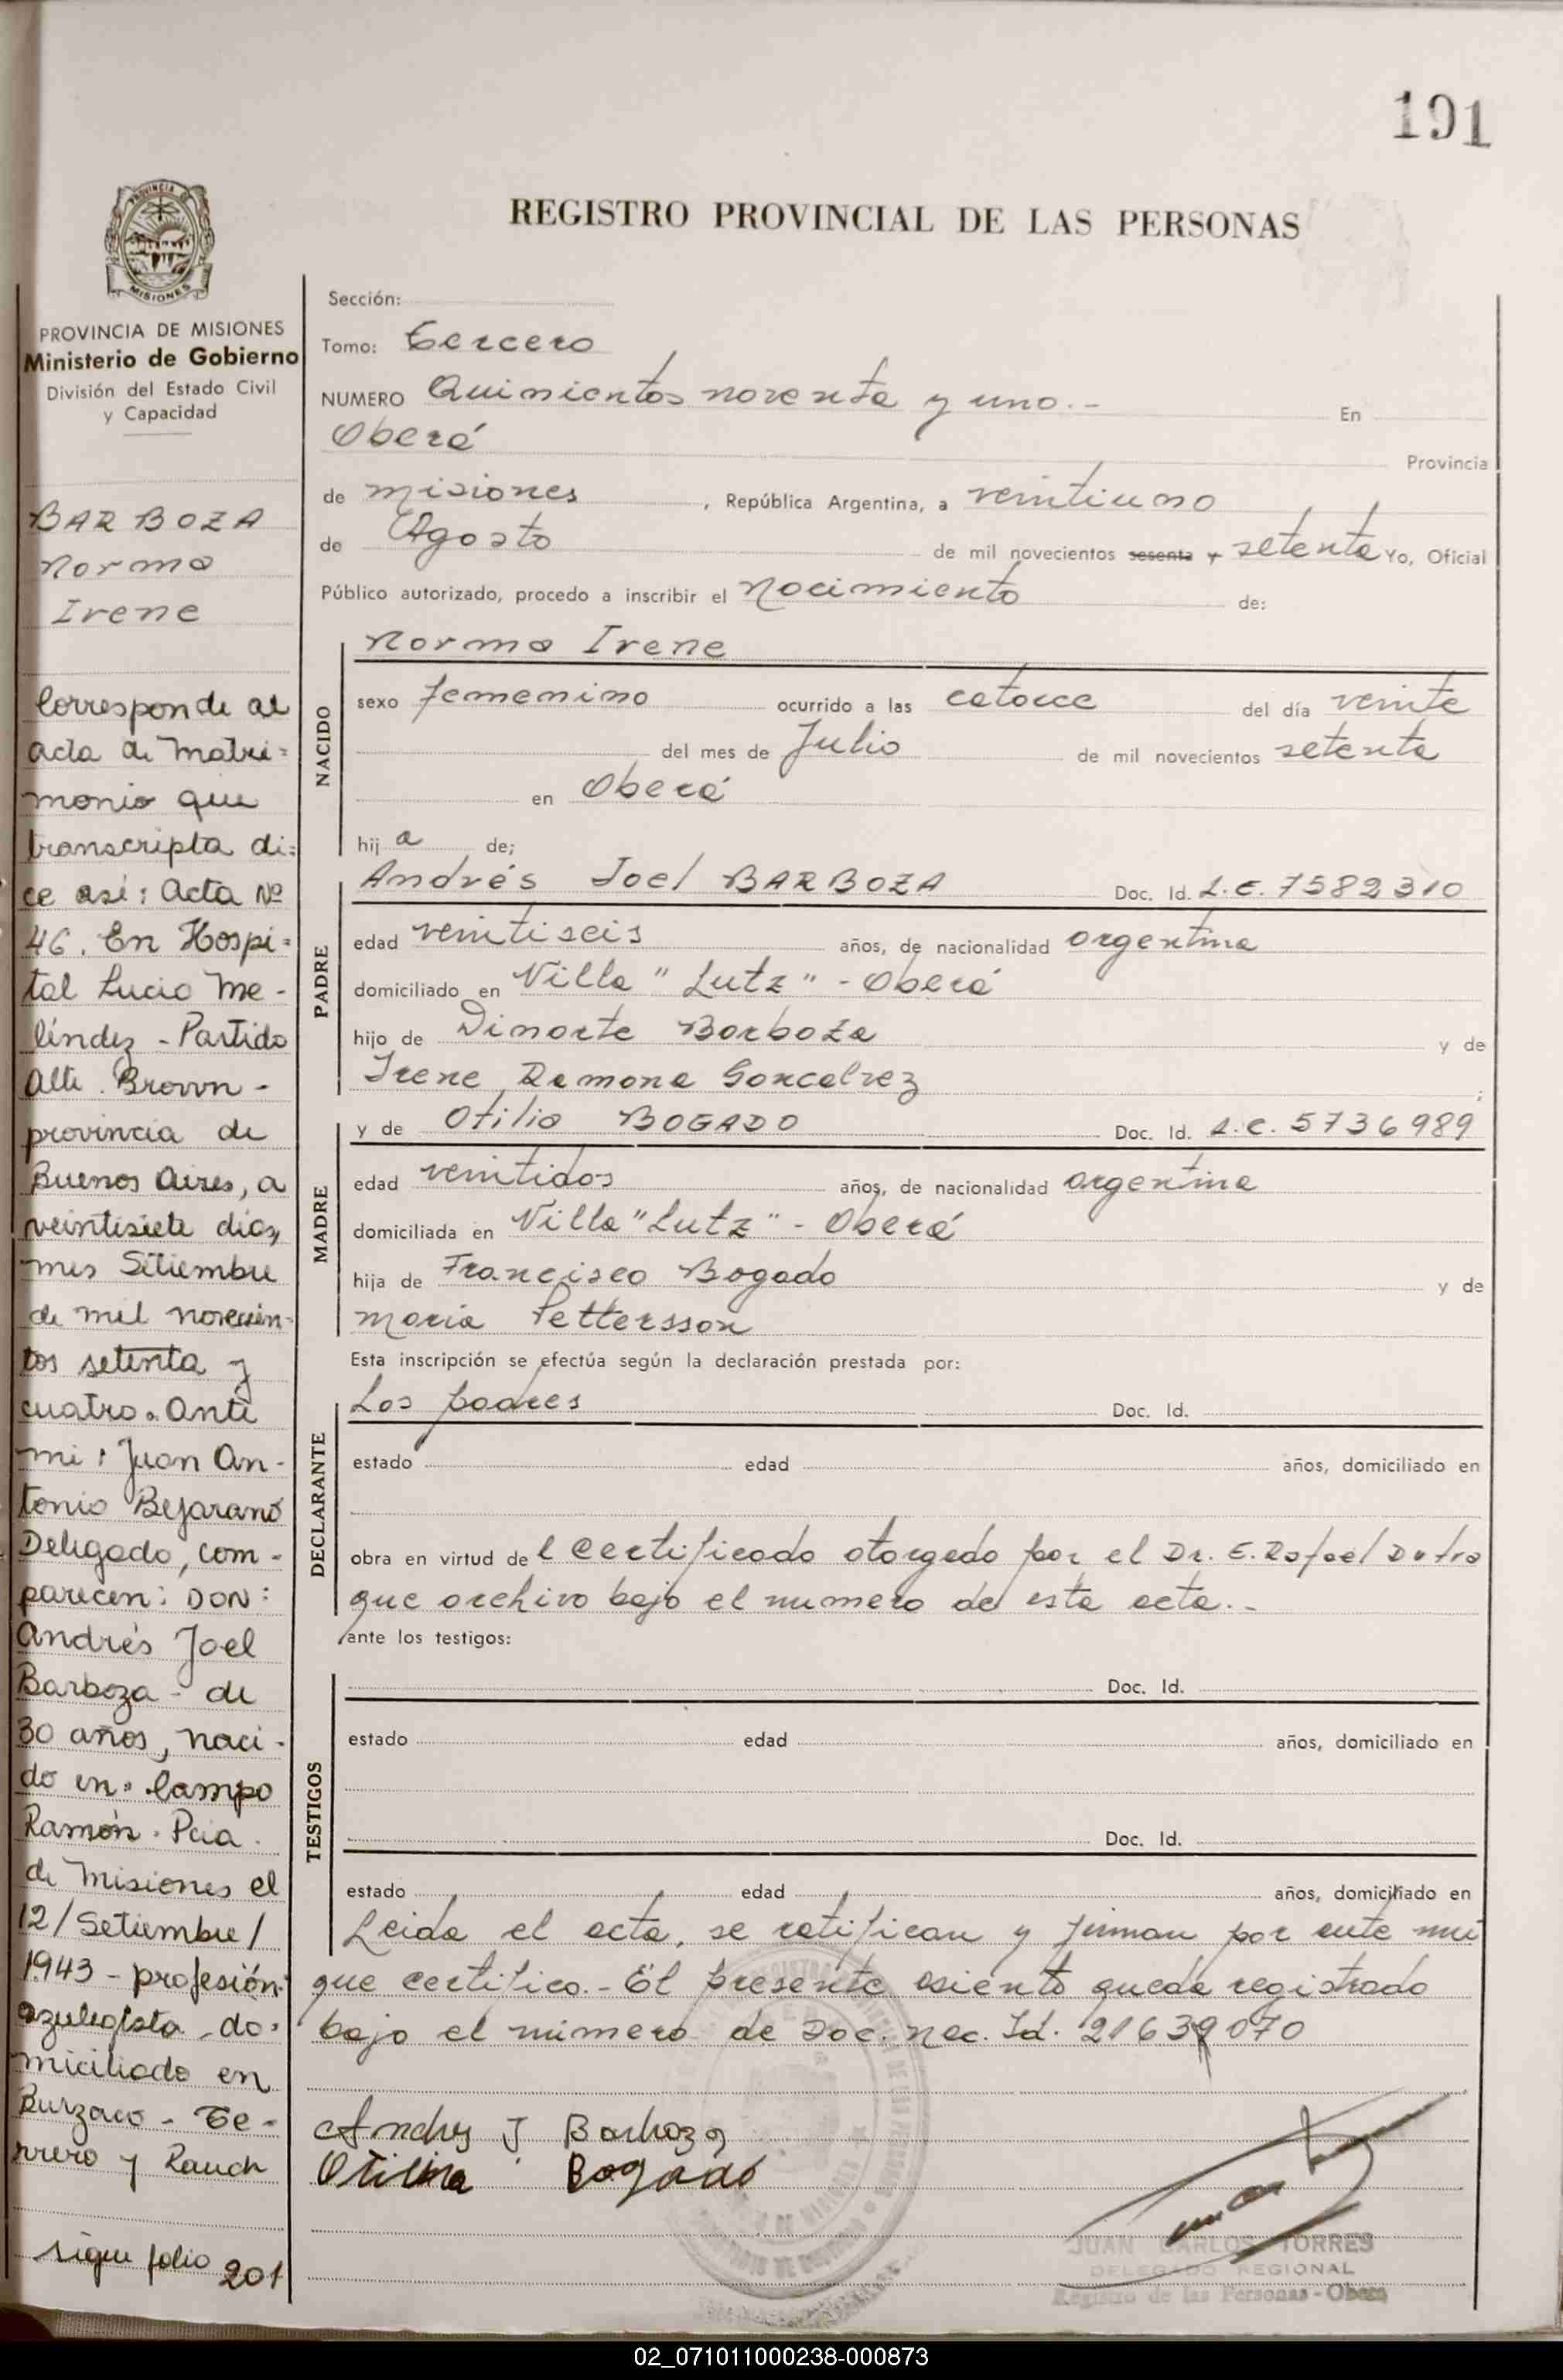 191
REGISTRO PROVINCIAL DE LAS PERSONAS
PROVINCIA DE
MISIONES
PROVINCIA DE MISIONES
Ministerio de Gobierno
División del Estado Civil
y Capacidad
BARBOZA
Norma
Irene
Corresponde al
acta de Matri=
monio que
transcripta di=
ce así: Acta Nº
46. En Hospi=
tal Lucio Me-
léndez - Partido
Alte. Brown -
provincia de
Buenos Aires, a
veintisiete días,
mes Setiembre
de mil novecien-
tos setenta y
cuatro. Ante
mi: Juan An-
tonio Bejarano
Delegado, com-
parecen: DON:
Andrés Joel
Barboza - de
30 años, naci-
do en. Campo
Ramón. Pcia.
de Misiones el
12/Setiembre/
1943 - profesión:
azulegista - do-
miciliado en
Burzaco - Ce-
rrero y Rauch
sigue folio 201
Sección:
Tomo: Tercero
NUMERO Quinientos noventa y uno.- En
Oberá Provincia
de Misiones, República Argentina, a veintiuno
de Agosto de mil novecientos sesenta y setenta Yo, Oficial
Público autorizado, procedo a inscribir el Nacimiento de:
NACIDO
Norma Irene
sexo femenino ocurrido a las catorce del día veinte
del mes de Julio de mil novecientos setenta
en Oberá
hij a de;
PADRE
Andrés Joel BARBOZA Doc. Id. L.E. 7582310
edad veintiseis años, de nacionalidad argentina
domiciliado en Villa "Lutz" - Oberá
hijo de Dimarte Barboza y de
Irene Ramona Goncalvez ;
MADRE
y de Otilia BOGADO Doc. Id. L.C. 5736989
edad veintidos años, de nacionalidad argentina
domiciliada en Villa "Lutz" - Oberá
hija de Francisco Bogado y de
María Pettersson
Esta inscripción se efectúa según la declaración prestada por:
DECLARANTE
Los padres Doc. Id.
estado edad años, domiciliado en
obra en virtud de l Certificado otorgado por el Dr. E. Rafael Dutra
que archivo bajo el numero de esta acta.-
ante los testigos:
TESTIGOS
Doc. Id.
estado edad años, domiciliado en
Doc. Id.
estado edad años, domiciliado en
Leida el acta, se ratifican y firman por ante mi
que certifico.- El presente asiento queda registrado
bajo el número de Doc. Nac. Id. 21639070
Andres J Barboza
Otilia Bogado
JUAN CARLOS TORRES
DELEGADO REGIONAL
Registro de las Personas - Oberá
02_071011000238-000873